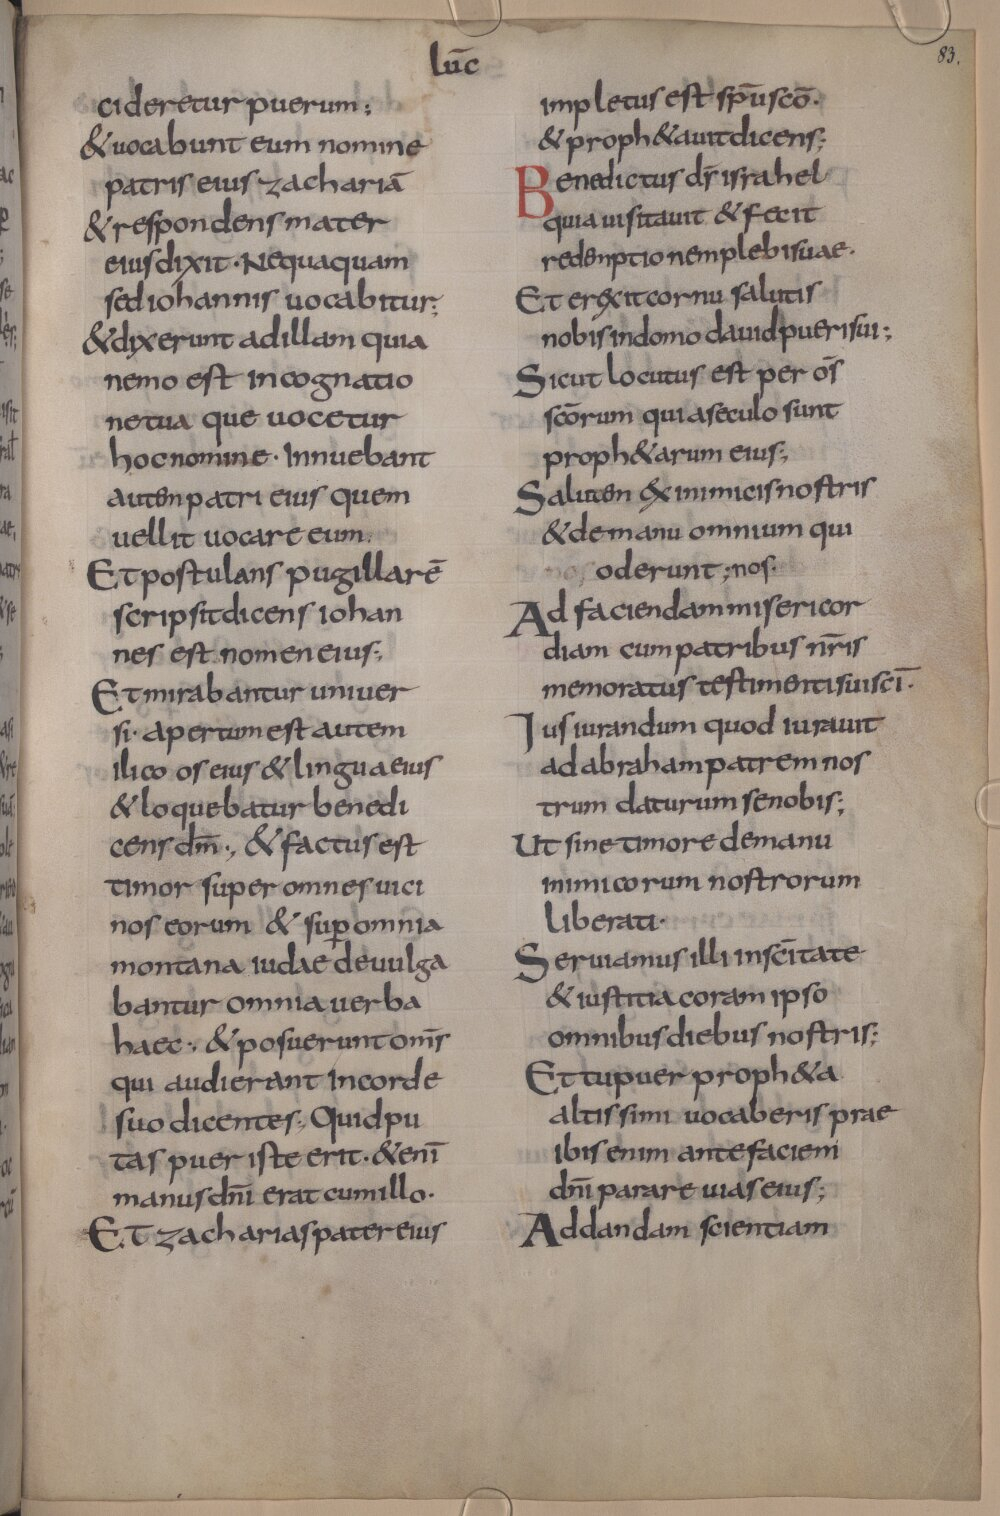 lūc
83.
cideretur puerum;
& uocabunt eum nomine
patris eius zachariā
& respondens mater
eius dixit · Nequaquam
sed iohannis uocabitur;
& dixerunt ad illam quia
nemo est in cognatio
ne tua que uocetur
hoc nomine · Innuebant
autem patri eius quem
uellit uocare eum.
Et postulans pugillarē
scripsit dicens iohan
nes est nomen eius;
Et mirabantur uniuer
si · apertum est autem
ilico os eius & lingua eius
& loquebatur benedi
cens dm̄ ·, & factus est
timor super omnes uici
nos eorum & sup omnia
montana iudae deuulga
bantur omnia uerba
haec ·, & posuerunt om̄s
qui audierant in corde
suo dicentes; Quid pu
tas puer iste erit · & enī
manus dn̄i erat cum illo ·
Et zacharias pater eius
impletus est sp̄u scō ·
& proph&auit dicens;
Benedictus dš israhel
quia uisitauit & fecit
redemptionem plebi suae ·
Et erexit cornu salutis
nobis in domo dauid pueri sui;
Sicut locutus est per ōs
scōrum qui a seculo sunt
proph&arum eius;
Salutem ex inimicis nostris
& de manu omnium qui
nos oderunt; nos·
Ad faciendam misericor
diam cum patribus nr̄is
memoratus testimenti sui scī ·
Iusiurandum quod iurauit
ad abraham patrem nos
trum daturum se nobis;
Ut sine timore de manu
inimicorum nostrorum
liberati ·
Seruiamus illi in scītate
& iustitia coram ipso
omnibus diebus nostris;
Et tu puer proph&a
altissimi uocaberis prae
ibis enim ante faciem
dn̄i parare uias eius;
Ad dandam scientiam